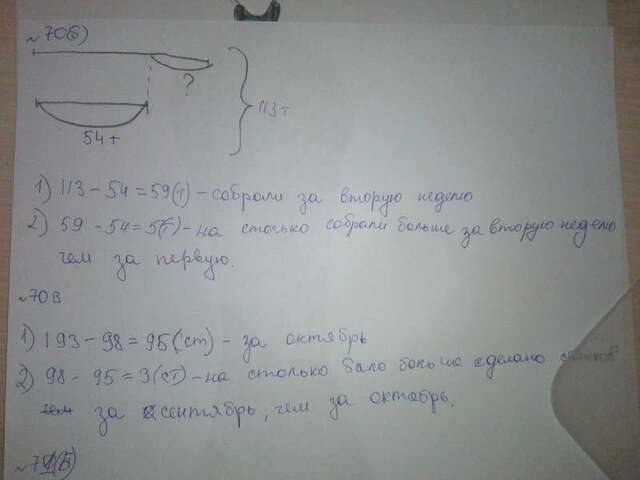 ~70(б)
?
54 т
113 т
1) 113 - 54 = 59(т) - собрали за вторую неделю
2) 59 - 54 = 5(т) - на столько собрали больше за вторую неделю
чем за первую.
~70 в
1) 193 - 98 = 95(ст) - за октябрь
2) 98 - 95 = 3(ст) - на столько было больше сделано
за сентябрь, чем за октябрь.